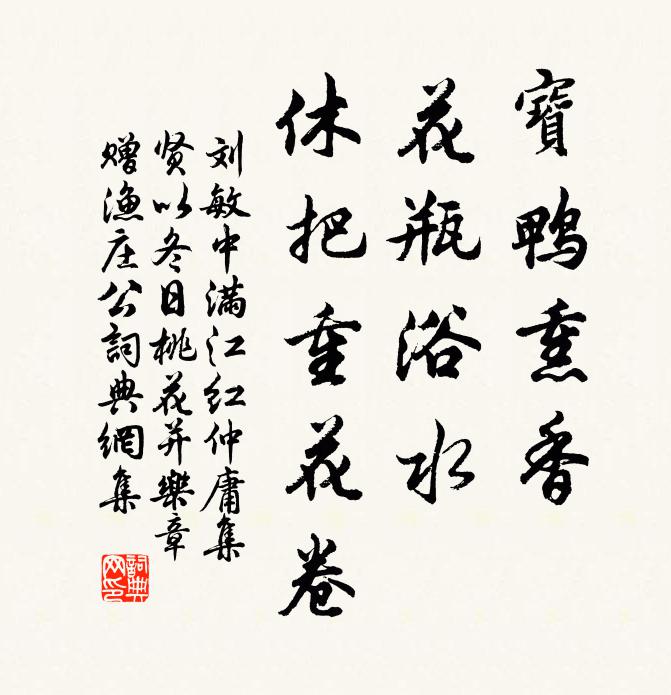 寶鸭熏香
花瓶浴水
休把重花卷
刘敏中满江红仲庸集
贤以冬日桃花并樂章
赠渔庄公詞典網集
詞典网印